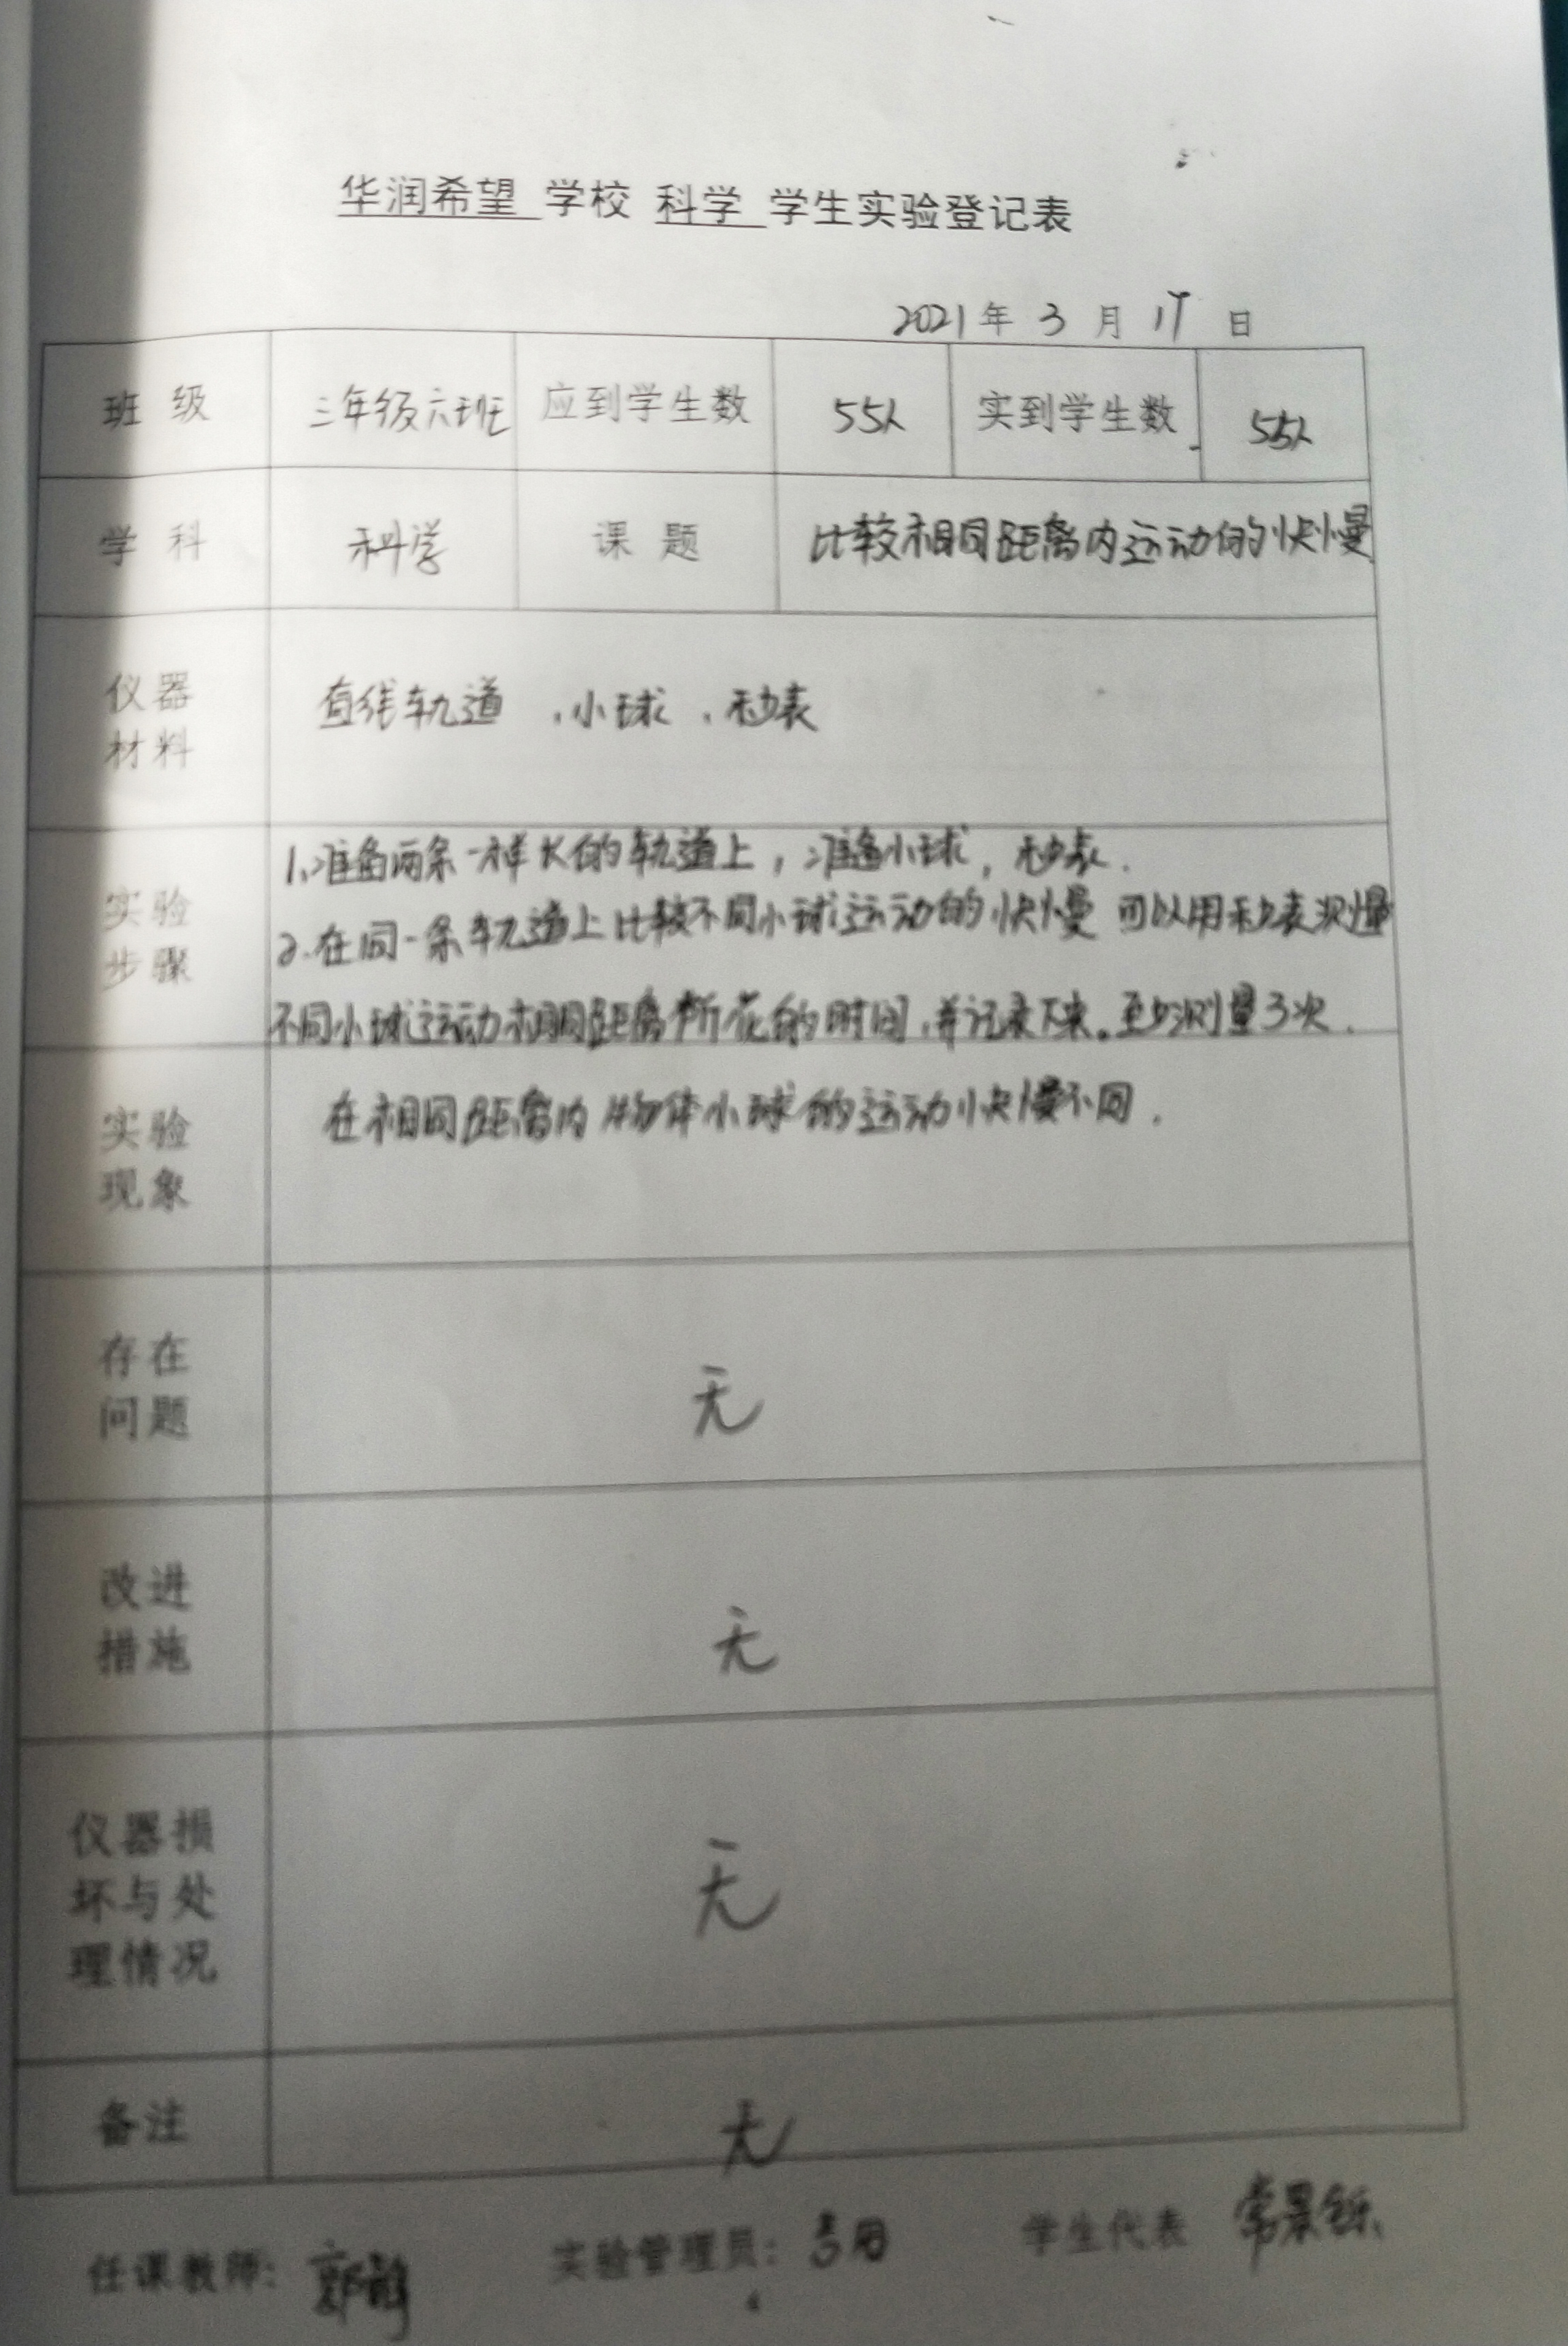 华润希望 学校 科学 学生实验登记表
2021年 3 月 17 日
班 级 三年级六班 应到学生数 55人 实到学生数 55人
学 科 科学 课 题 比较相同距离内运动的快慢
仪器
材料
直线轨道 、小球 、秒表
实验
步骤
1、准备两条一样长的轨道上，准备小球，秒表.
2.在同一条轨道上比较不同小球运动的快慢 可以用秒表测量
不同小球运动相同距离所花的时间，并记录下来。至少测量3次.
实验
现象
在相同距离内物体小球的运动快慢不同.
存在
问题
无
改进
措施
无
仪器损
坏与处
理情况
无
备注
无
任课教师: 实验管理员: 学生代表